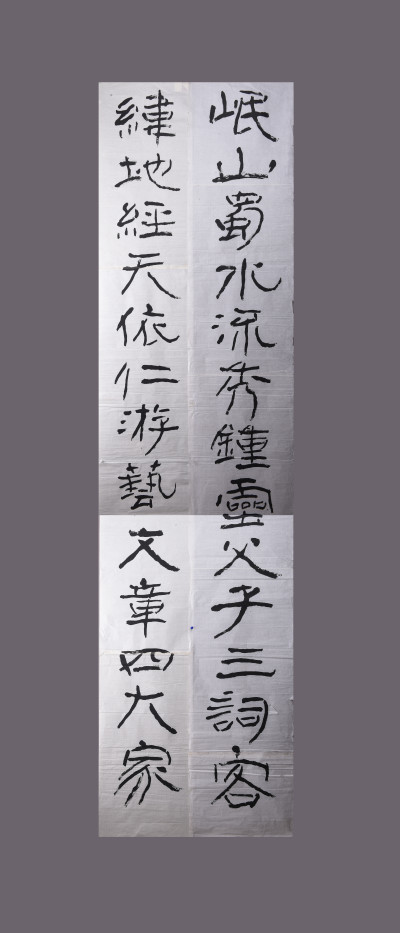 岷山蜀水流秀鍾靈父子三詞客
緯地經天依仁游藝文章四大家